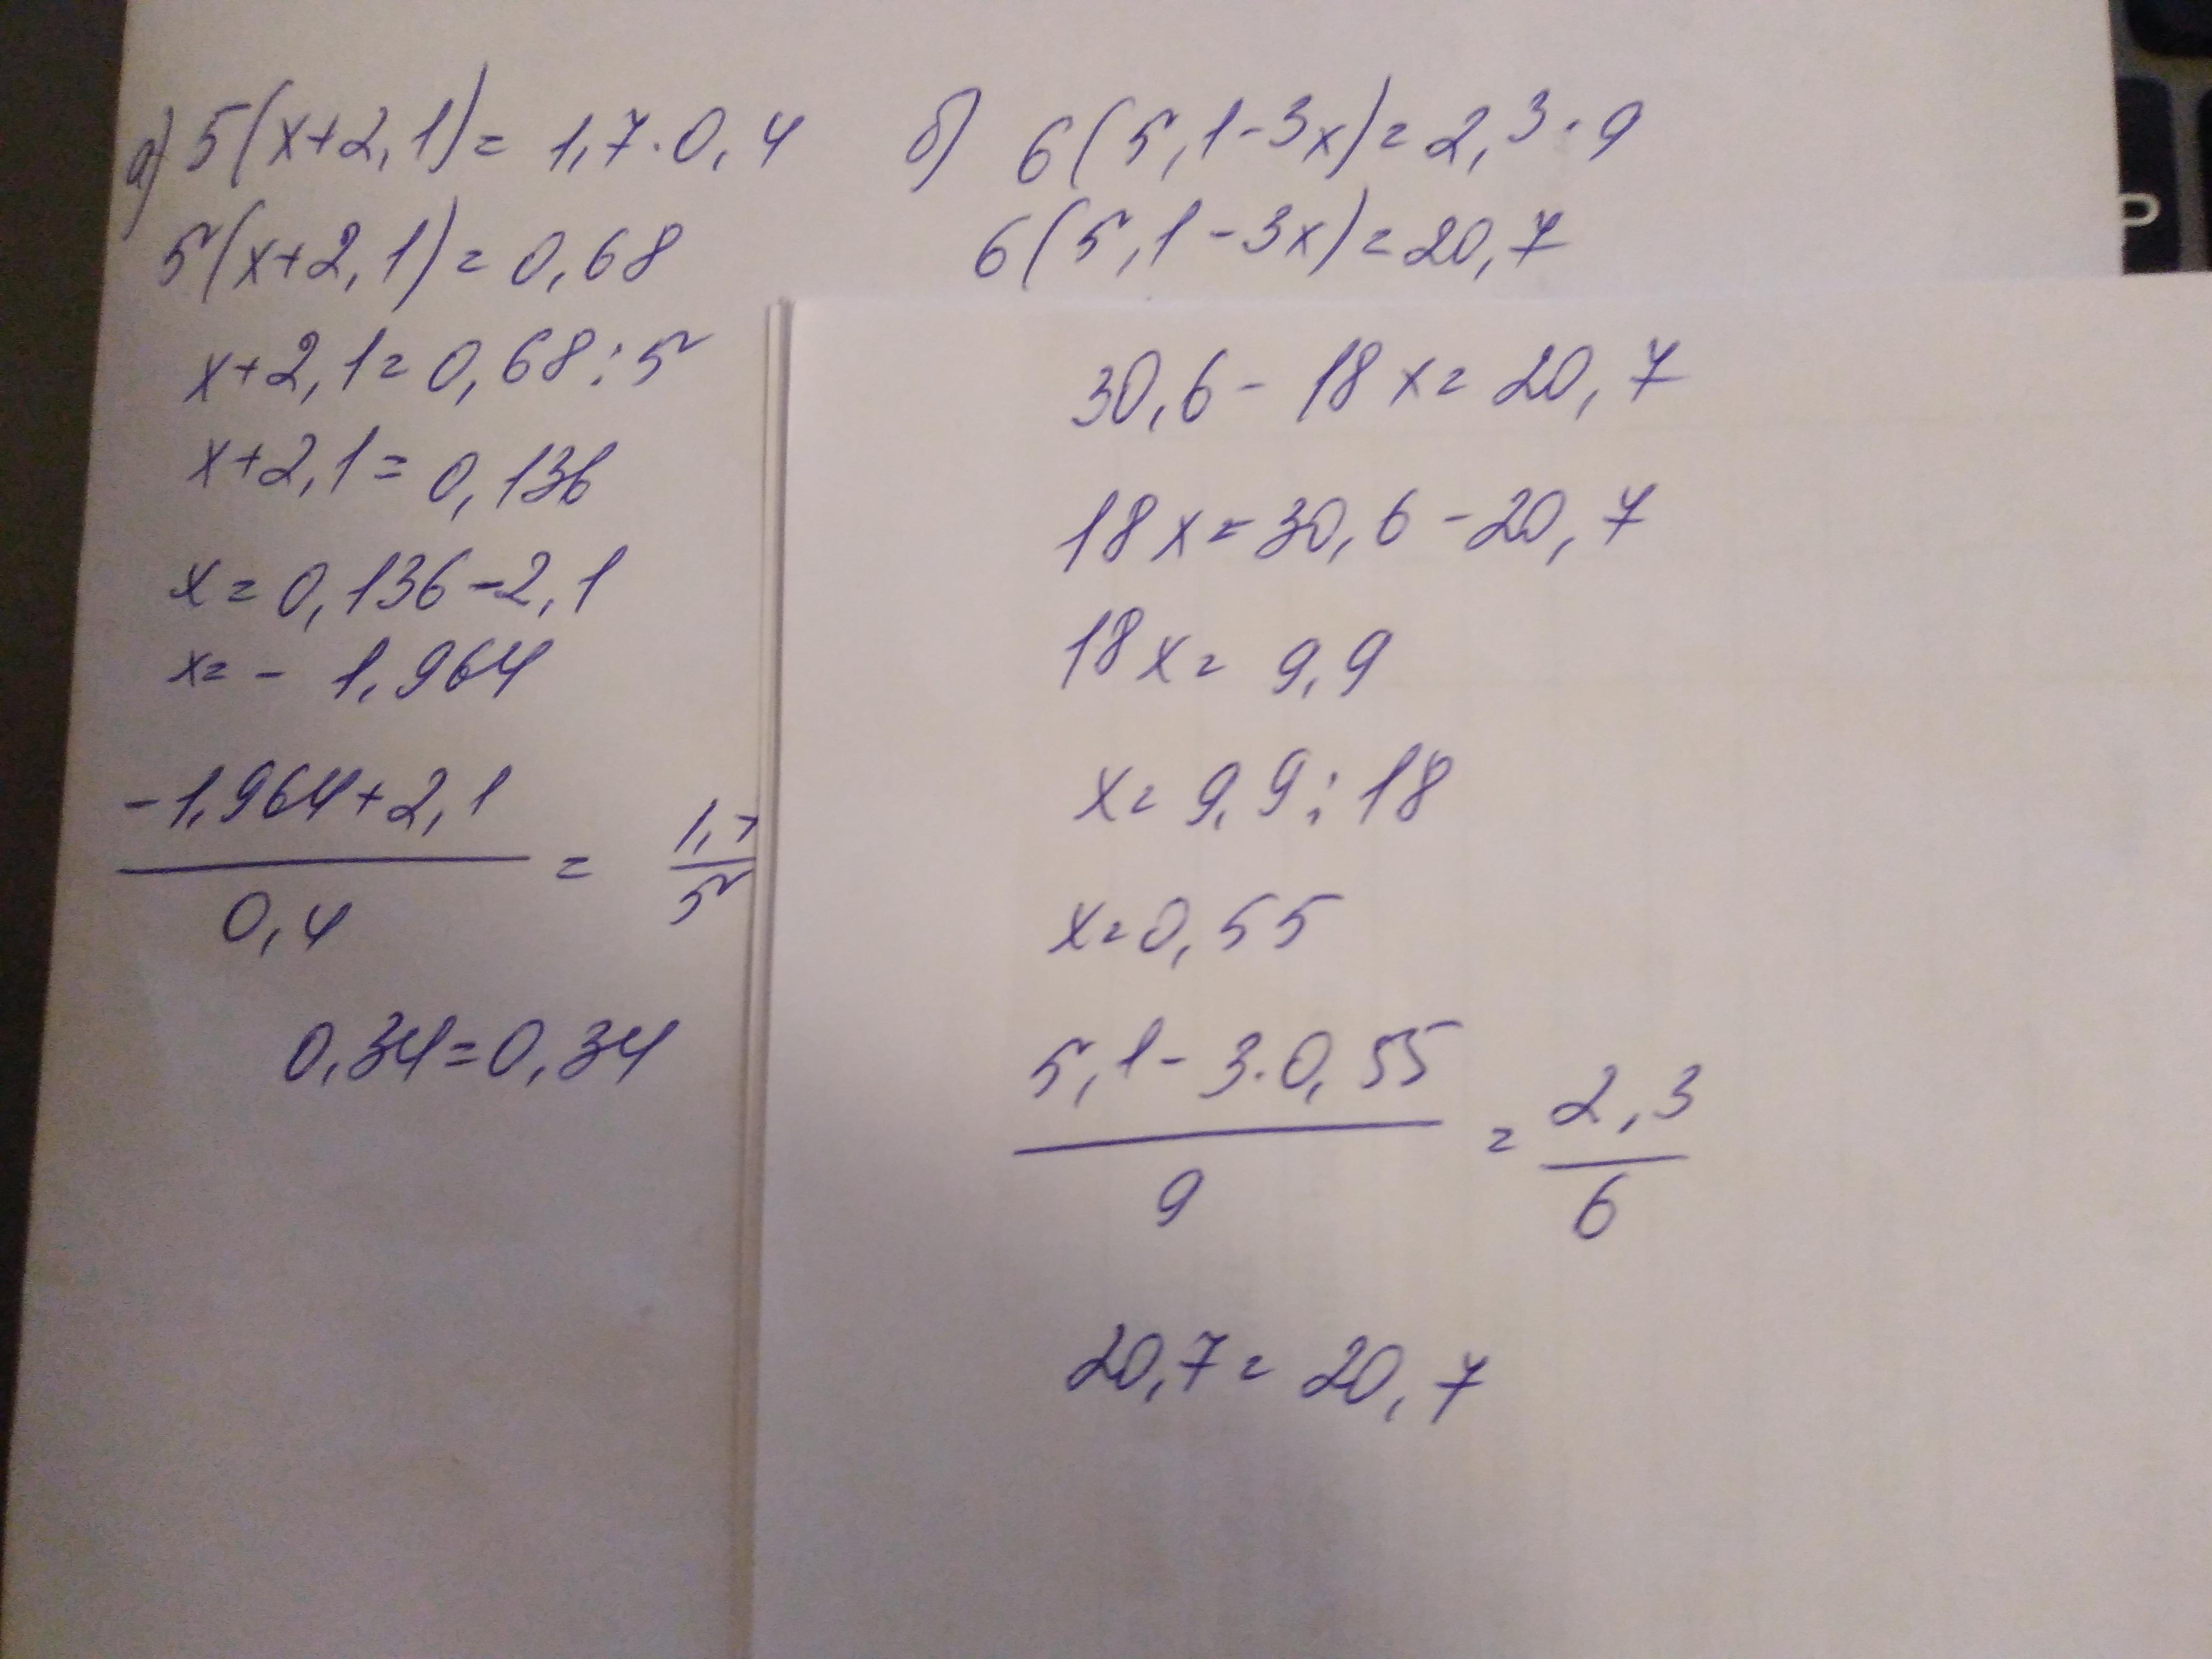 а) 5(x+2,1)= 1,7·0,4
5(x+2,1)=0,68
x+2,1=0,68:5
x+2,1=0,136
x=0,136-2,1
x=- 1,964
-1,964+2,1 / 0,4 = 1,7 / 5
0,34=0,34
б) 6(5,1-3x)=2,3·9
6(5,1-3x)=20,7
30,6-18x=20,7
18x=30,6-20,7
18x=9,9
x=9,9:18
x=0,55
5,1-3·0,55 / 9 = 2,3 / 6
20,7=20,7
P